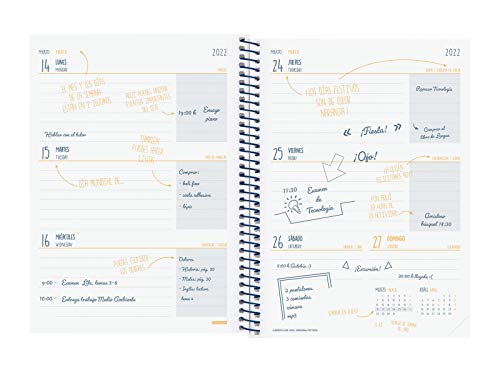 MARZO MARCH
2022
14 LUNES
MONDAY
EL MES Y LOS DÍAS
DE LA SEMANA
ESTÁN EN 2 IDIOMAS
AQUÍ PUEDES ANOTAR
EVENTOS IMPORTANTES
DEL DÍA
19:00 h Ensayo
piano
Hablar con el tutor
15 MARTES
TUESDAY
TAMBIÉN
PUEDES HACER
LISTAS
DÍA MUNDIAL DE...
Comprar:
- boli fino
- cinta adhesiva
- lápiz
16 MIÉRCOLES
WEDNESDAY
PUEDES ESCRIBIR
LOS DEBERES
9:00 Examen Lite. temas 3-6
10:00 Entrega trabajo Medio Ambiente
Deberes:
- Historia: pág. 20
- Mates: pág. 30
- Inglés: lectura
tema 2
MARZO MARCH
2022
24 JUEVES
THURSDAY
LOS DÍAS FESTIVOS
SON DE COLOR
NARANJA!
Repasar Tecnología
¡Fiesta!
Comprar el
libro de Lengua
25 VIERNES
FRIDAY
¡Ojo!
11:30 Examen
de
Tecnología
PON AQUÍ
LA HORA DE
TU ACTIVIDAD
18:30
26 SÁBADO
SATURDAY
27 DOMINGO
SUNDAY
¡Excursión!
2 pantalones
3 camisetas
cámara
mp3
MARZO MARCH
ABRIL APRIL